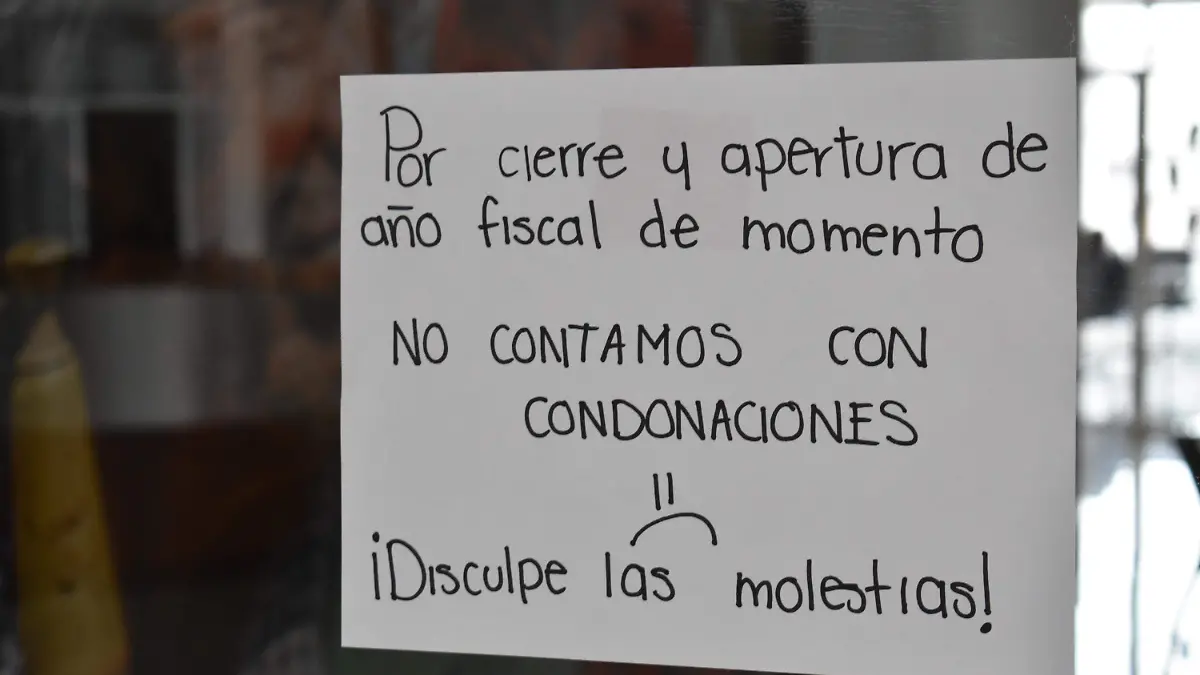 Por cierre y apertura de
año fiscal de momento
NO CONTAMOS CON
CONDONACIONES
¡Disculpe las molestias!